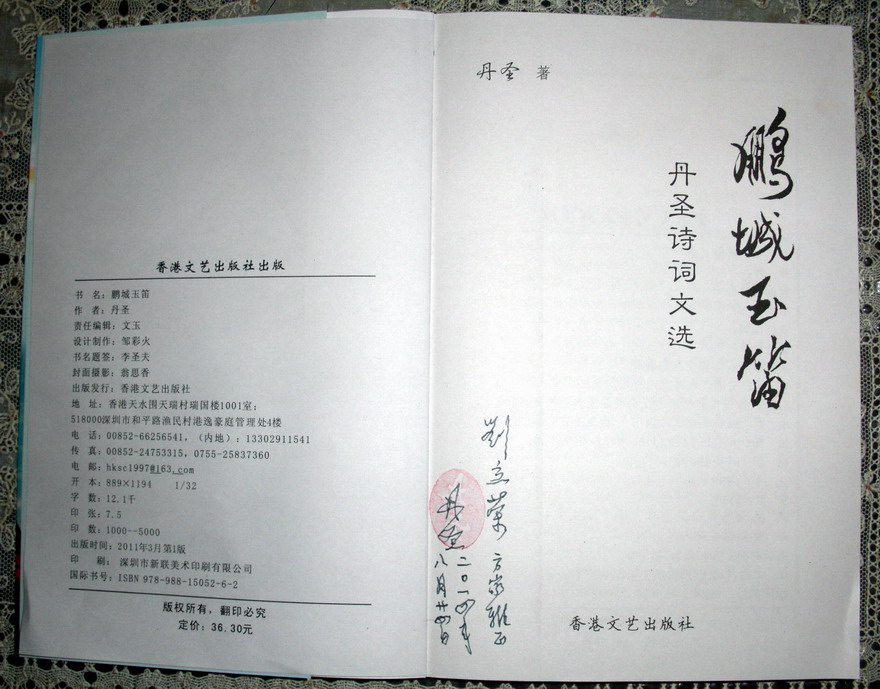 香港文艺出版社出版
书 名：鹏城玉笛
作 者：丹圣
责任编辑：文玉
设计制作：邹彩火
书名题签：李圣夫
封面摄影：翁思香
出版发行：香港文艺出版社
地 址：香港天水围天瑞村瑞国楼1001室；
518000深圳市和平路渔民村港逸豪庭管理处4楼
电 话：00852-66256541，（内地）：13302911541
传 真：00852-24753315，0755-25837360
电 邮：hksc1997@163.com
开 本：889×1194 1/32
字 数：12.1千
印 张：7.5
印 数：1000--5000
出版时间：2011年3月第1版
印 刷： 深圳市新联美术印刷有限公司
国际书号：ISBN 978-988-15052-6-2
版权所有，翻印必究
定价：36.30元
丹圣 著
鹏城玉笛
丹圣诗词文选
劉立荣 方家雅正
丹圣
二〇一四年
八月廿四日
香港文艺出版社